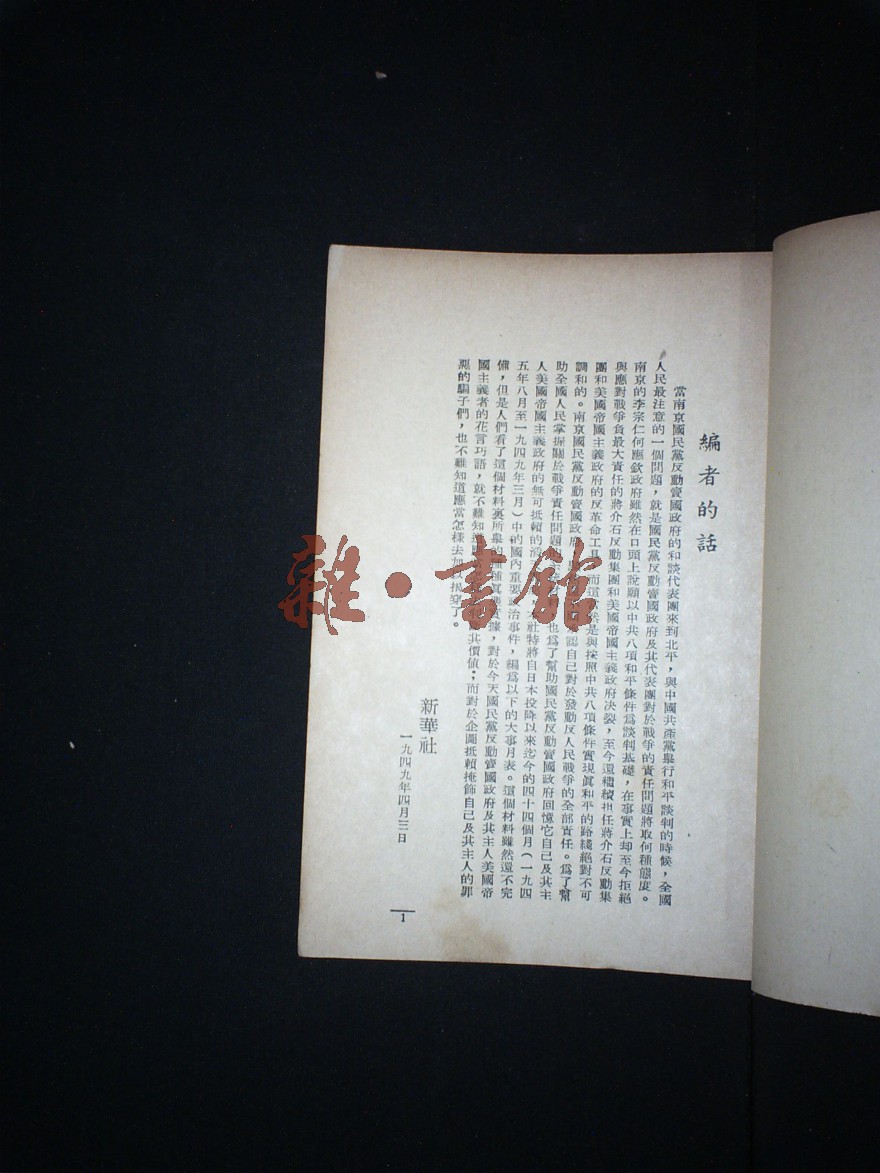 編者的話
當南京國民黨反動賣國政府的和談代表團來到北平，與中國共產黨舉行和平談判的時候，全國
人民最注意的一個問題，就是國民黨反動賣國政府及其代表團對於戰爭的責任問題將取何種態度。
南京的李宗仁何應欽政府雖然在口頭上說願以中共八項和平條件爲談判基礎，在事實上却至今拒絕
與應對戰爭負最大責任的蔣介石反動集團和美國帝國主義政府決裂，至今還繼續担任蔣介石反動集
團和美國帝國主義政府的反革命工具，而這 然是與按照中共八項條件實現眞和平的路綫絕對不可
調和的。南京國民黨反動賣國政府 認自己對於發動反人民戰爭的全部責任。爲了幫
助全國人民掌握關於戰爭責任問題 也爲了幫助國民黨反動賣國政府回憶它自己及其主
人美國帝國主義政府的無可抵賴的 本社特將自日本投降以來迄今的四十四個月（一九四
五年八月至一九四九年三月）中的國內重要政治事件，編爲以下的大事月表。這個材料雖然還不完
備，但是人們看了這個材料裏所舉 據，對於今天國民黨反動賣國政府及其主人美國帝
國主義者的花言巧語，就不難知道 其價値；而對於企圖抵賴掩飾自己及其主人的罪
惡的騙子們，也不難知道應當怎樣去加以揭穿了。
新華社
一九四九年四月三日
1
雜·書館